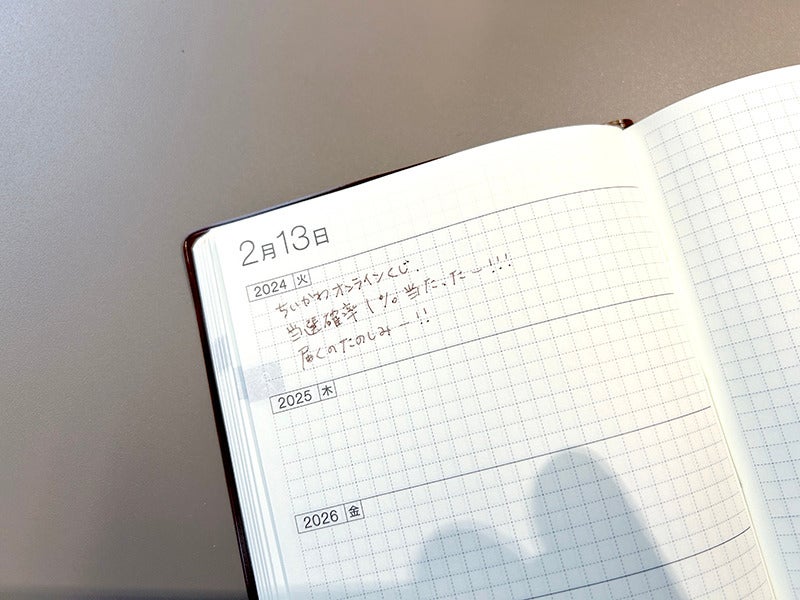 2月13日
2024 火
ちいかわオンラインくじ.
当選確率1%当たったー!!!
届くのたのしみー!!
2025 木
2026 金